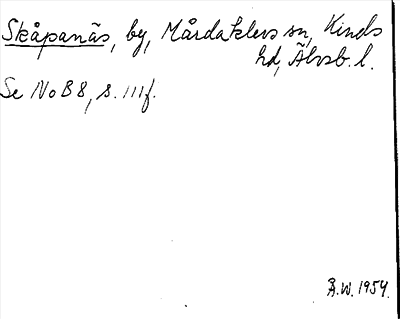 Skåpanäs, by, Mårdaklevs sn, Kinds
hd, Älvsb. l.
Se NoB 8, s. 111f.
Å.W. 1954.